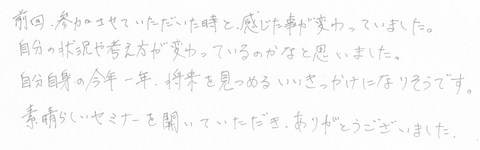 前回、参加させていただいた時と、感じた事が変わっていました。
自分の状況や考え方が変わっているのかなと思いました。
自分自身の今年一年、将来を見つめるいいきっかけになりそうです。
素晴らしいセミナーを開いていただき、ありがとうございました。